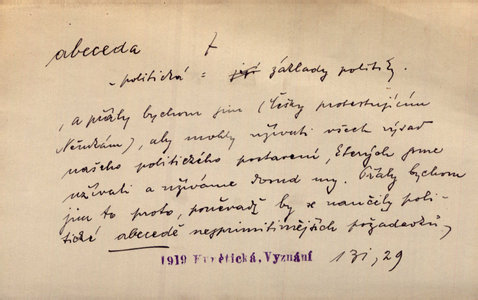 abeceda
- politická = její základy politiky.
, a přály bychom jim (Češky protestujícím
Němkám), aby mohly užívati všech výsad
našeho politického postavení, kterých jsme
užívali a užíváme dosud my. Přály bychom
jim to proto, poněvadž by se naučily poli-
tické abecedě nejprimitivnějších požadavků,
1919 Kvetická, Vyznání
131, 29